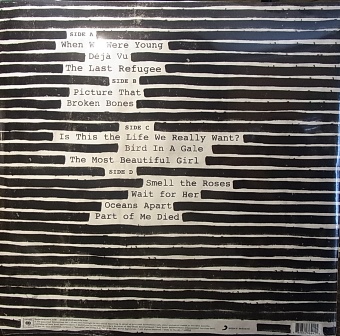 SIDE A
When W Were Young
Déjà Vu
The Last Refugee
SIDE B
Picture That
Broken Bones
SIDE C
Is This the Life We Really Want?
Bird In A Gale
The Most Beautiful Girl
SIDE D
Smell the Roses
Wait for Her
Oceans Apart
Part of Me Died